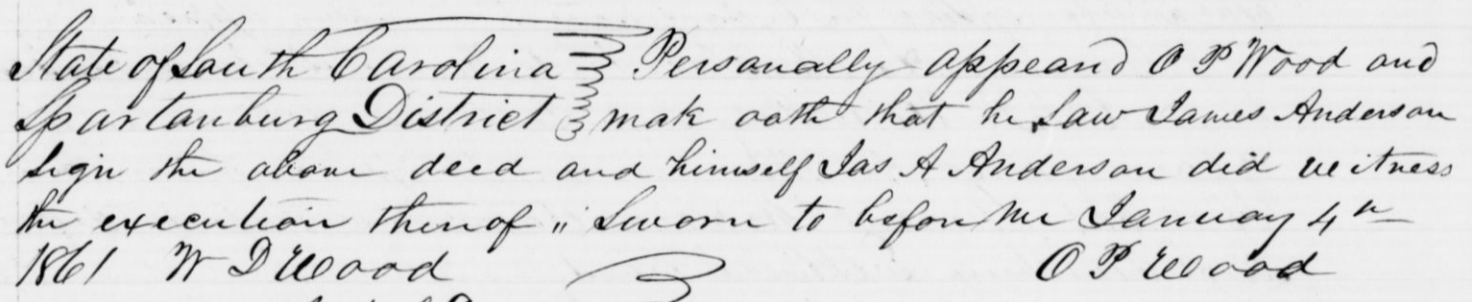 State of South Carolina Personally appeard O P Wood and
Spartanburg District mak oath that he Saw James Anderson
Sign the above deed and himself Jas A Anderson did witness
the execution thereof " Sworn to before me January 4th
1861 W D Wood O P Wood